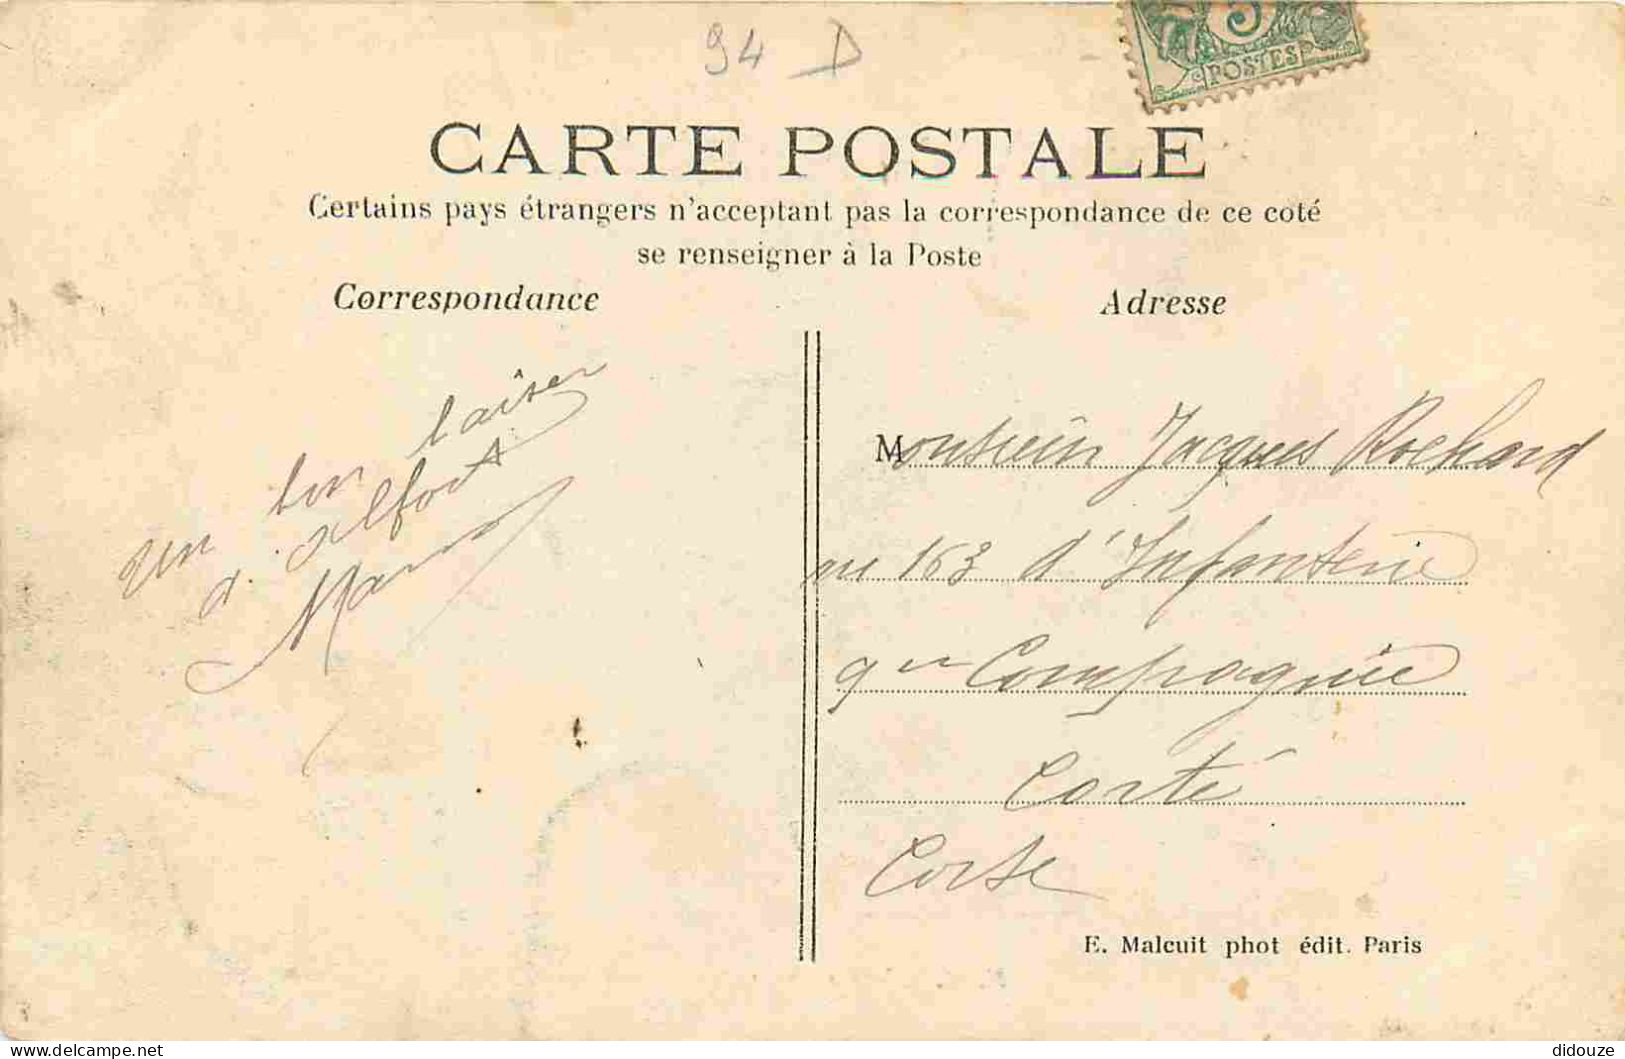 94 D
5
POSTES
CARTE POSTALE
Certains pays étrangers n'acceptant pas la correspondance de ce coté
se renseigner à la Poste
Correspondance
Adresse
un bon baiser
d'Alfort
Monsieur Jacques Rochard
au 163 d'Infanterie
9me Compagnie
Corté
Corse
E. Malcuit phot édit. Paris
www.delcampe.net
didouze